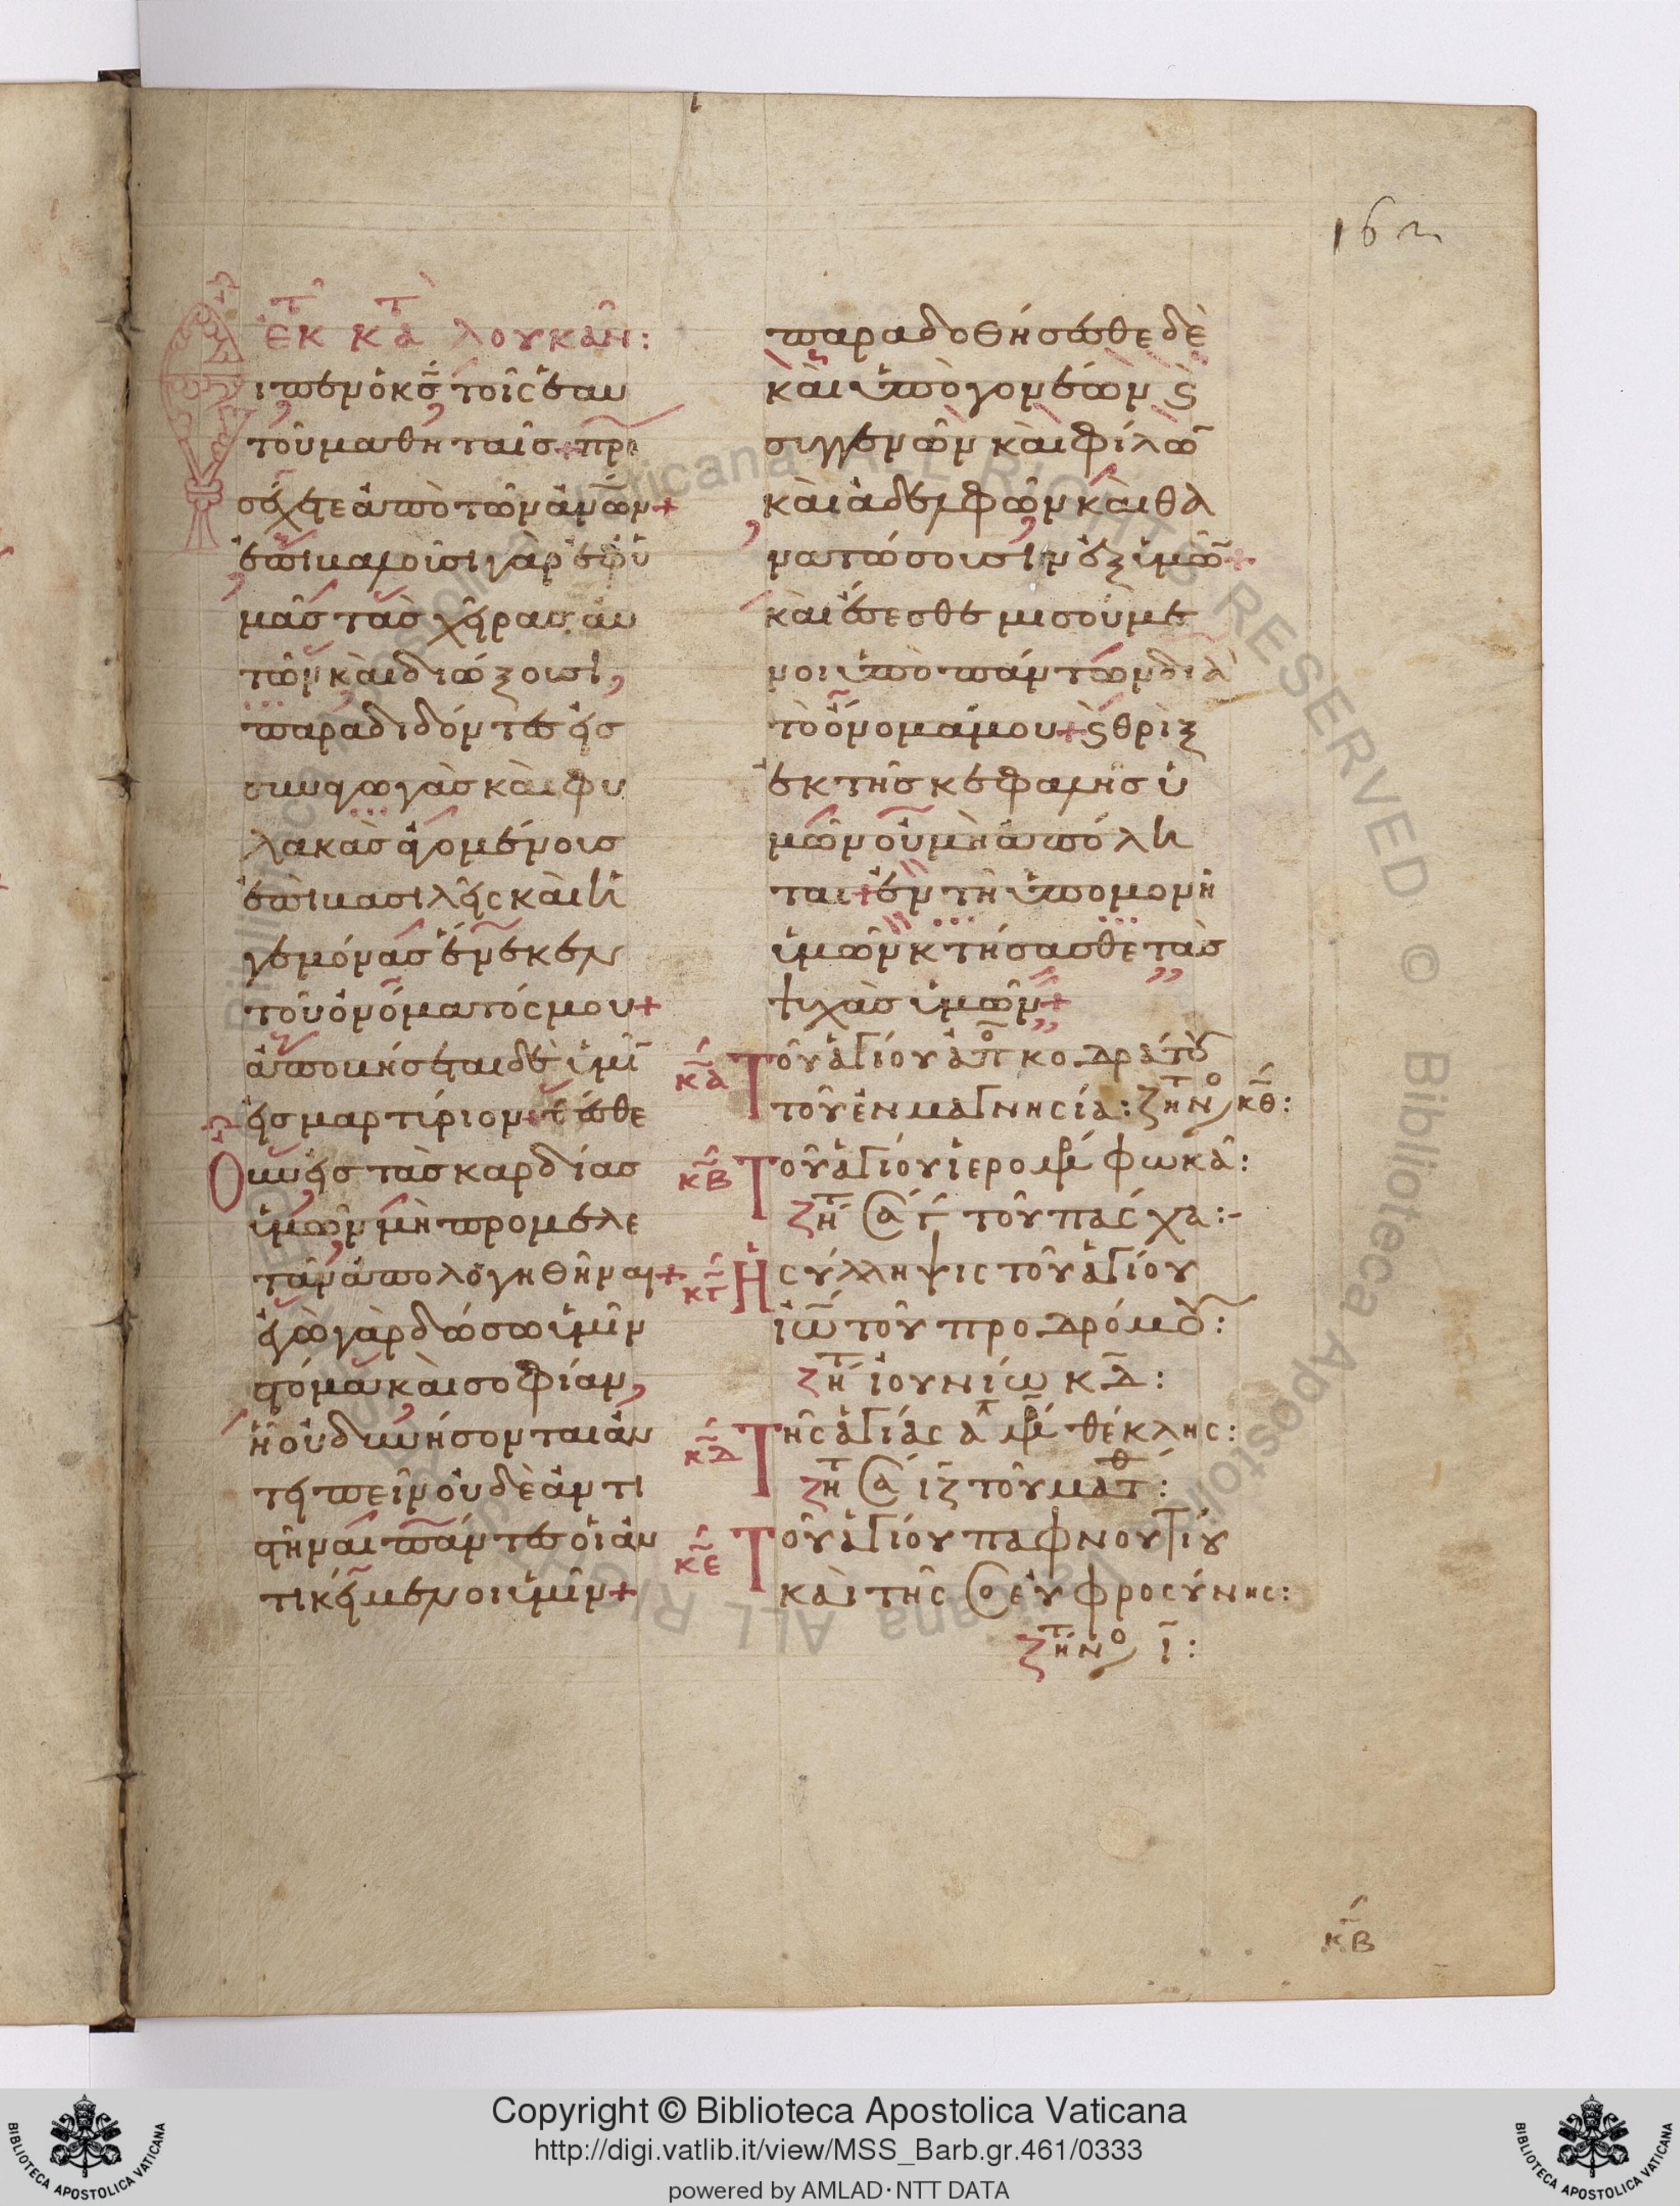 162
ἐκ τ κατ λουκᾶν:
ιπεν ὁ κς τοῖς ἑαυ
τοῦ μαθηταῖς + προ
σέχετε ἀπὸ τῶν ἀνων +
ἐπιβαλοῦσι γὰρ ἐφ ὑ
μᾶς τὰς χεῖρας αὐ
τῶν καὶ διώξουσι,
παραδιδόντες εἰς
συναγωγὰς καὶ φυ
λακὰς ἀγομένους
ἐπὶ βασιλεῖς καὶ ἡ
γεμόνας ἕνεκεν
τοῦ ὀνόματός μου +
ἀποβήσεται δὲ ὑμῖ
εἰς μαρτύριον + θέσθε
οὖν εἰς τὰς καρδίας
ὑμῶν μὴ προμελε
τᾶν ἀπολογηθῆναι +
ἐγὼ γὰρ δώσω ὑμῖν
στόμα καὶ σοφίαν,
ἧ οὐ δυνήσονται ἀν
τειπεῖν οὐδὲ ἀντι
στῆναι πάντες οἱ ἀν
τικείμενοι ὑμῖν +
παραδοθήσεσθε δὲ
καὶ ὑπὸ γονέων ϛ
συγγενῶν καὶ φίλω
καὶ ἀδελφῶν καὶ θα
νατώσουσιν ἐξ ὑμῶ +
καὶ ἔσεσθε μισούμε
νοι ὑπὸ πάντων διὰ
τὸ ὄνομά μου + ϛ θρὶξ
ἐκ τῆς κεφαλῆς ὑ
μῶν οὐ μὴ ἀπόλη
ται + ἐν τῇ ὑπομονῇ
ὑμῶν κτήσασθε τὰς
ψυχὰς ὑμῶν +
κα Τοῦ ἁγίου ἀπο κοδράτου
τοῦ ἐν μαγνησία: ζητ νο κθ:
κβ Τοῦ ἁγίου ἱερομρ φωκᾶ:
ζητ Σα γ τοῦ πάσχα:-
κγ Ἡ σύλληψις τοῦ ἁγίου
ἰω τοῦ προδρόμου:
ζητ ἰουνίω κδ:
κδ Τῆς ἁγίας απ μρ θέκλης:
ζητ Σα ιζ τοῦ ματθ:
κε Τοῦ ἁγίου παφνουτίου
καὶ τῆς ὁ εὐφροσύνης:
ζητ νο ι:
κβ
Copyright © Biblioteca Apostolica Vaticana
http://digi.vatlib.it/view/MSS_Barb.gr.461/0333
powered by AMLAD·NTT DATA
BIBLIOTECA APOSTOLICA VATICANA
BIBLIOTECA APOSTOLICA VATICANA